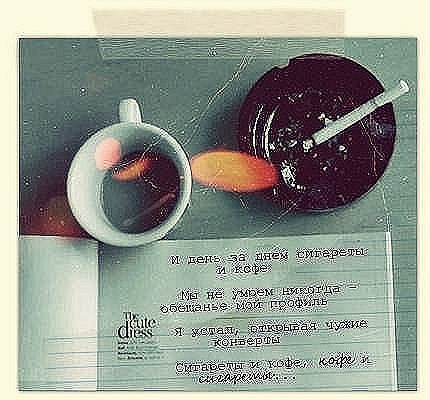 И день за днем сигареты
и кофе
Мы не умрем никогда -
обещанье мой профиль
Я устал, открывая чужие
конверты
Сигареты и кофе, кофе и
сигареты...
The
cute
dress